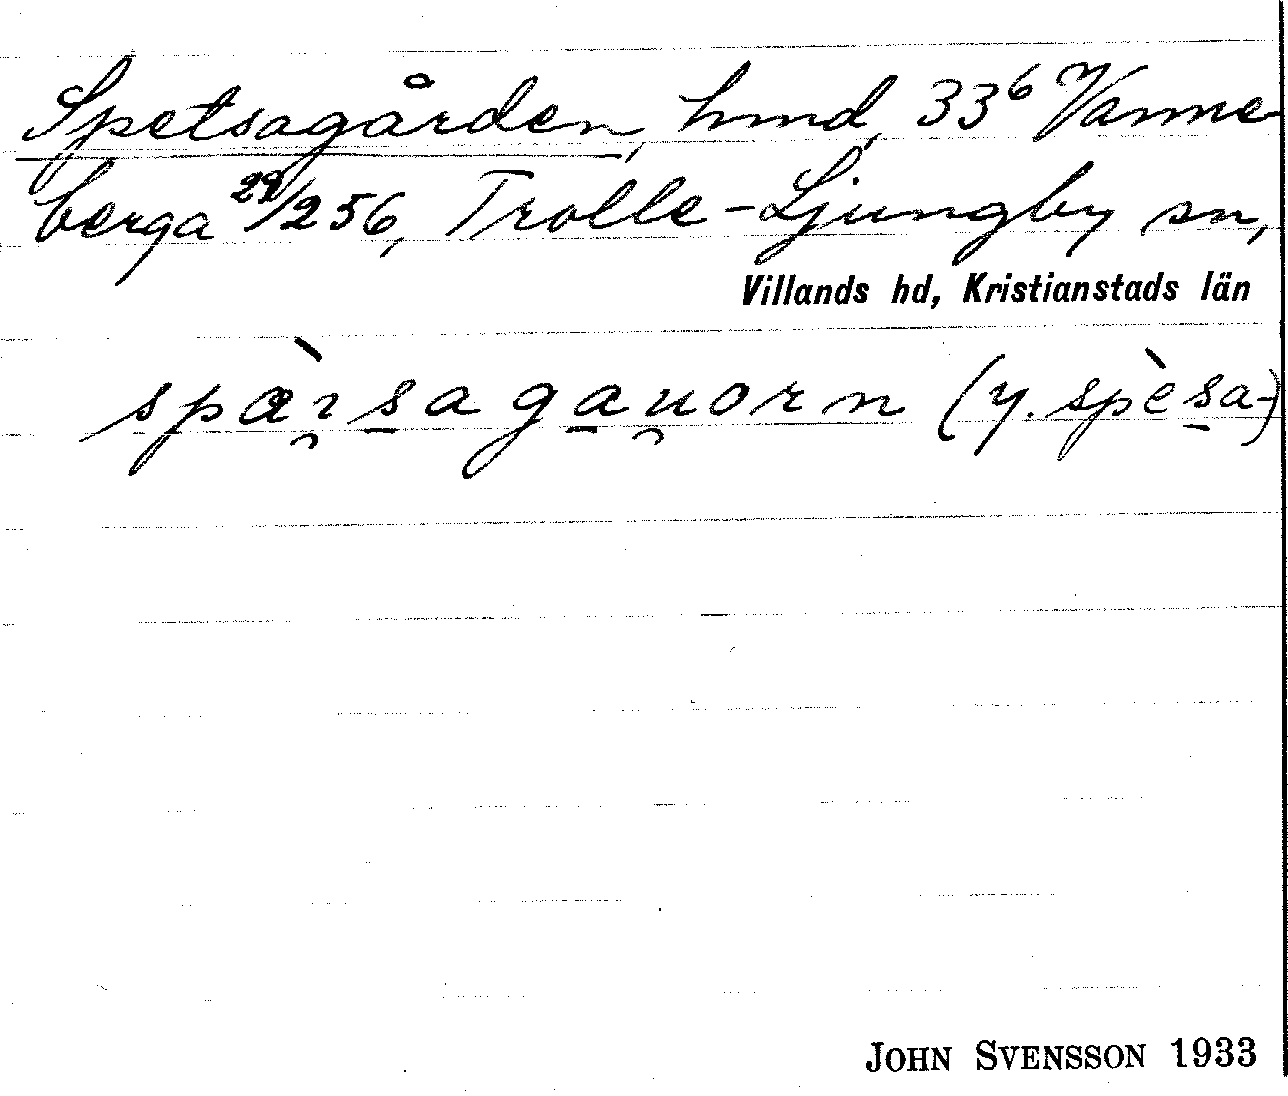 Spetsagården, hmd, 33⁶ Vanne-
berga ²⁹/256, Trolle-Ljungby sn,
Villands hd, Kristianstads län
spæ̀ɿsagau̯orn (y. spèsa-)
JOHN SVENSSON 1933